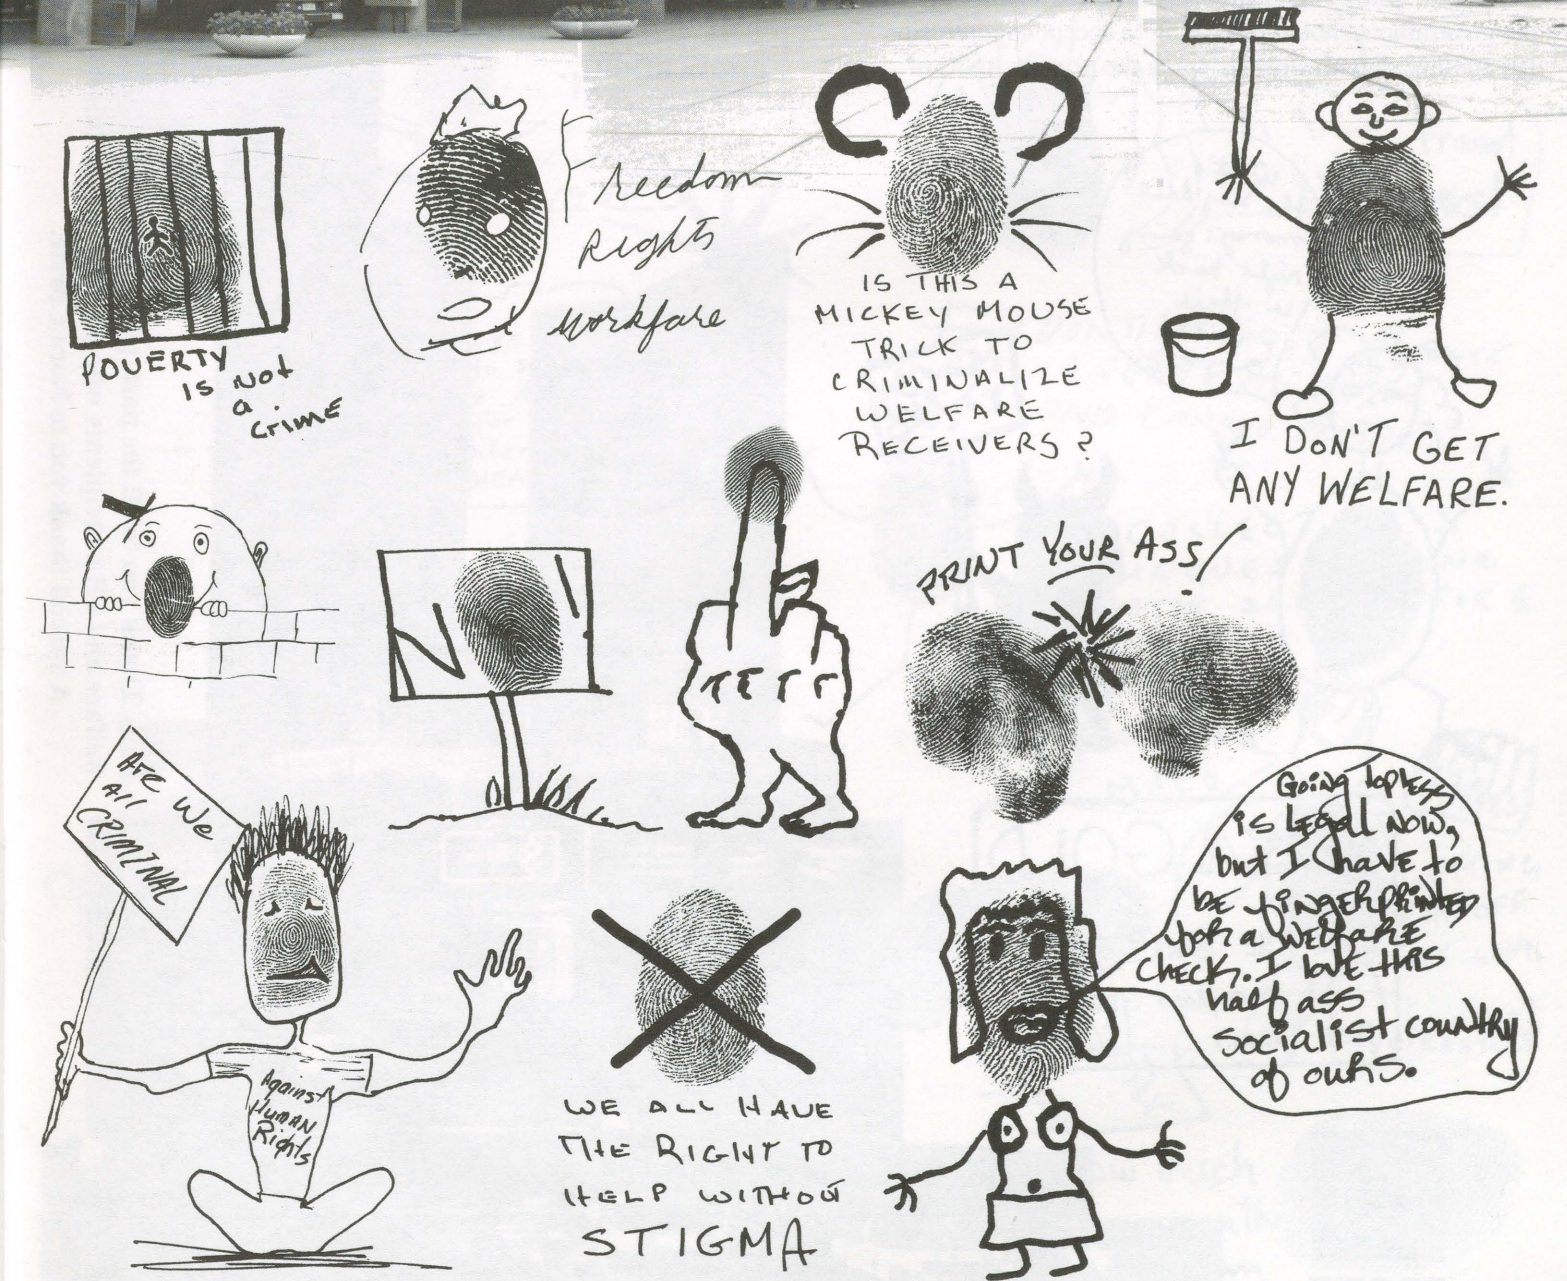 POVERTY
is Not
a
crime
Freedom
Rights
Workfare
IS THIS A
MICKEY MOUSE
TRICK TO
CRIMINALIZE
WELFARE
RECEIVERS?
I DON'T GET
ANY WELFARE.
NO!
PRINT YOUR ASS!
Are We
All
CRIMINAL
Against
Human
Rights
WE ALL HAVE
THE RIGHT TO
HELP WITHOUT
STIGMA
Going topless
is legall now,
but I have to
be fingerprinted
for a welfare
check. I love this
half ass
socialist country
of ours.